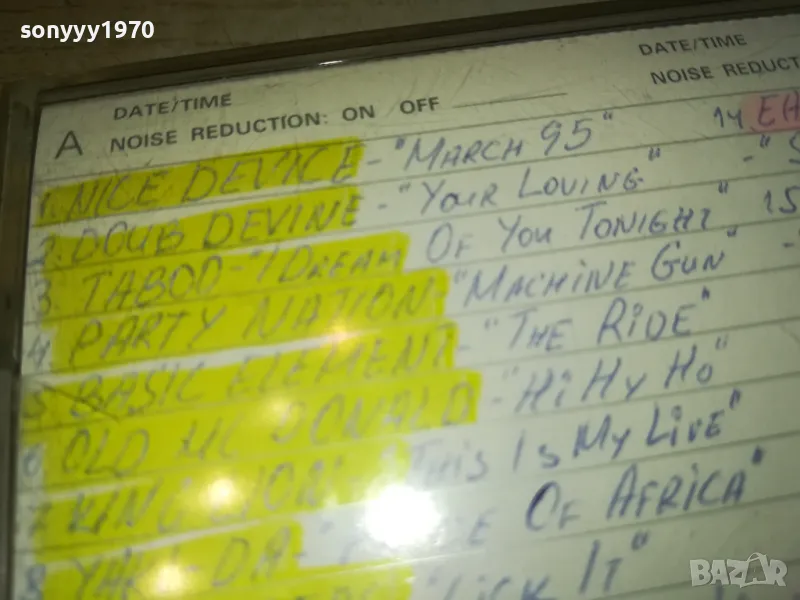 sonyyy1970
DATE/TIME
DATE/TIME
NOISE REDUCT
A NOISE REDUCTION: ON OFF
1. NICE DEVICE - "MARCH 95" 14 EA
2. DOUB DEVINE - "YOUR LOVING" - "S
3. TABOO - "I DREAM OF YOU TONIGHT" 15
4. PARTY NATION - "MACHINE GUN" -
5 BASIC ELEMENT - "THE RIDE"
6 OLD MC DONALD - "HI HY HO"
7 KING LION - "THIS IS MY LIVE"
8 YAKI-DA - OF AFRICA"
"LICK IT"
BAZAR